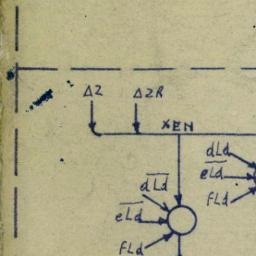 Δ2 Δ2R
XEN
d̅L̅d̅
e̅L̅d̅
fLd
dLd
e̅L̅d̅
fLd